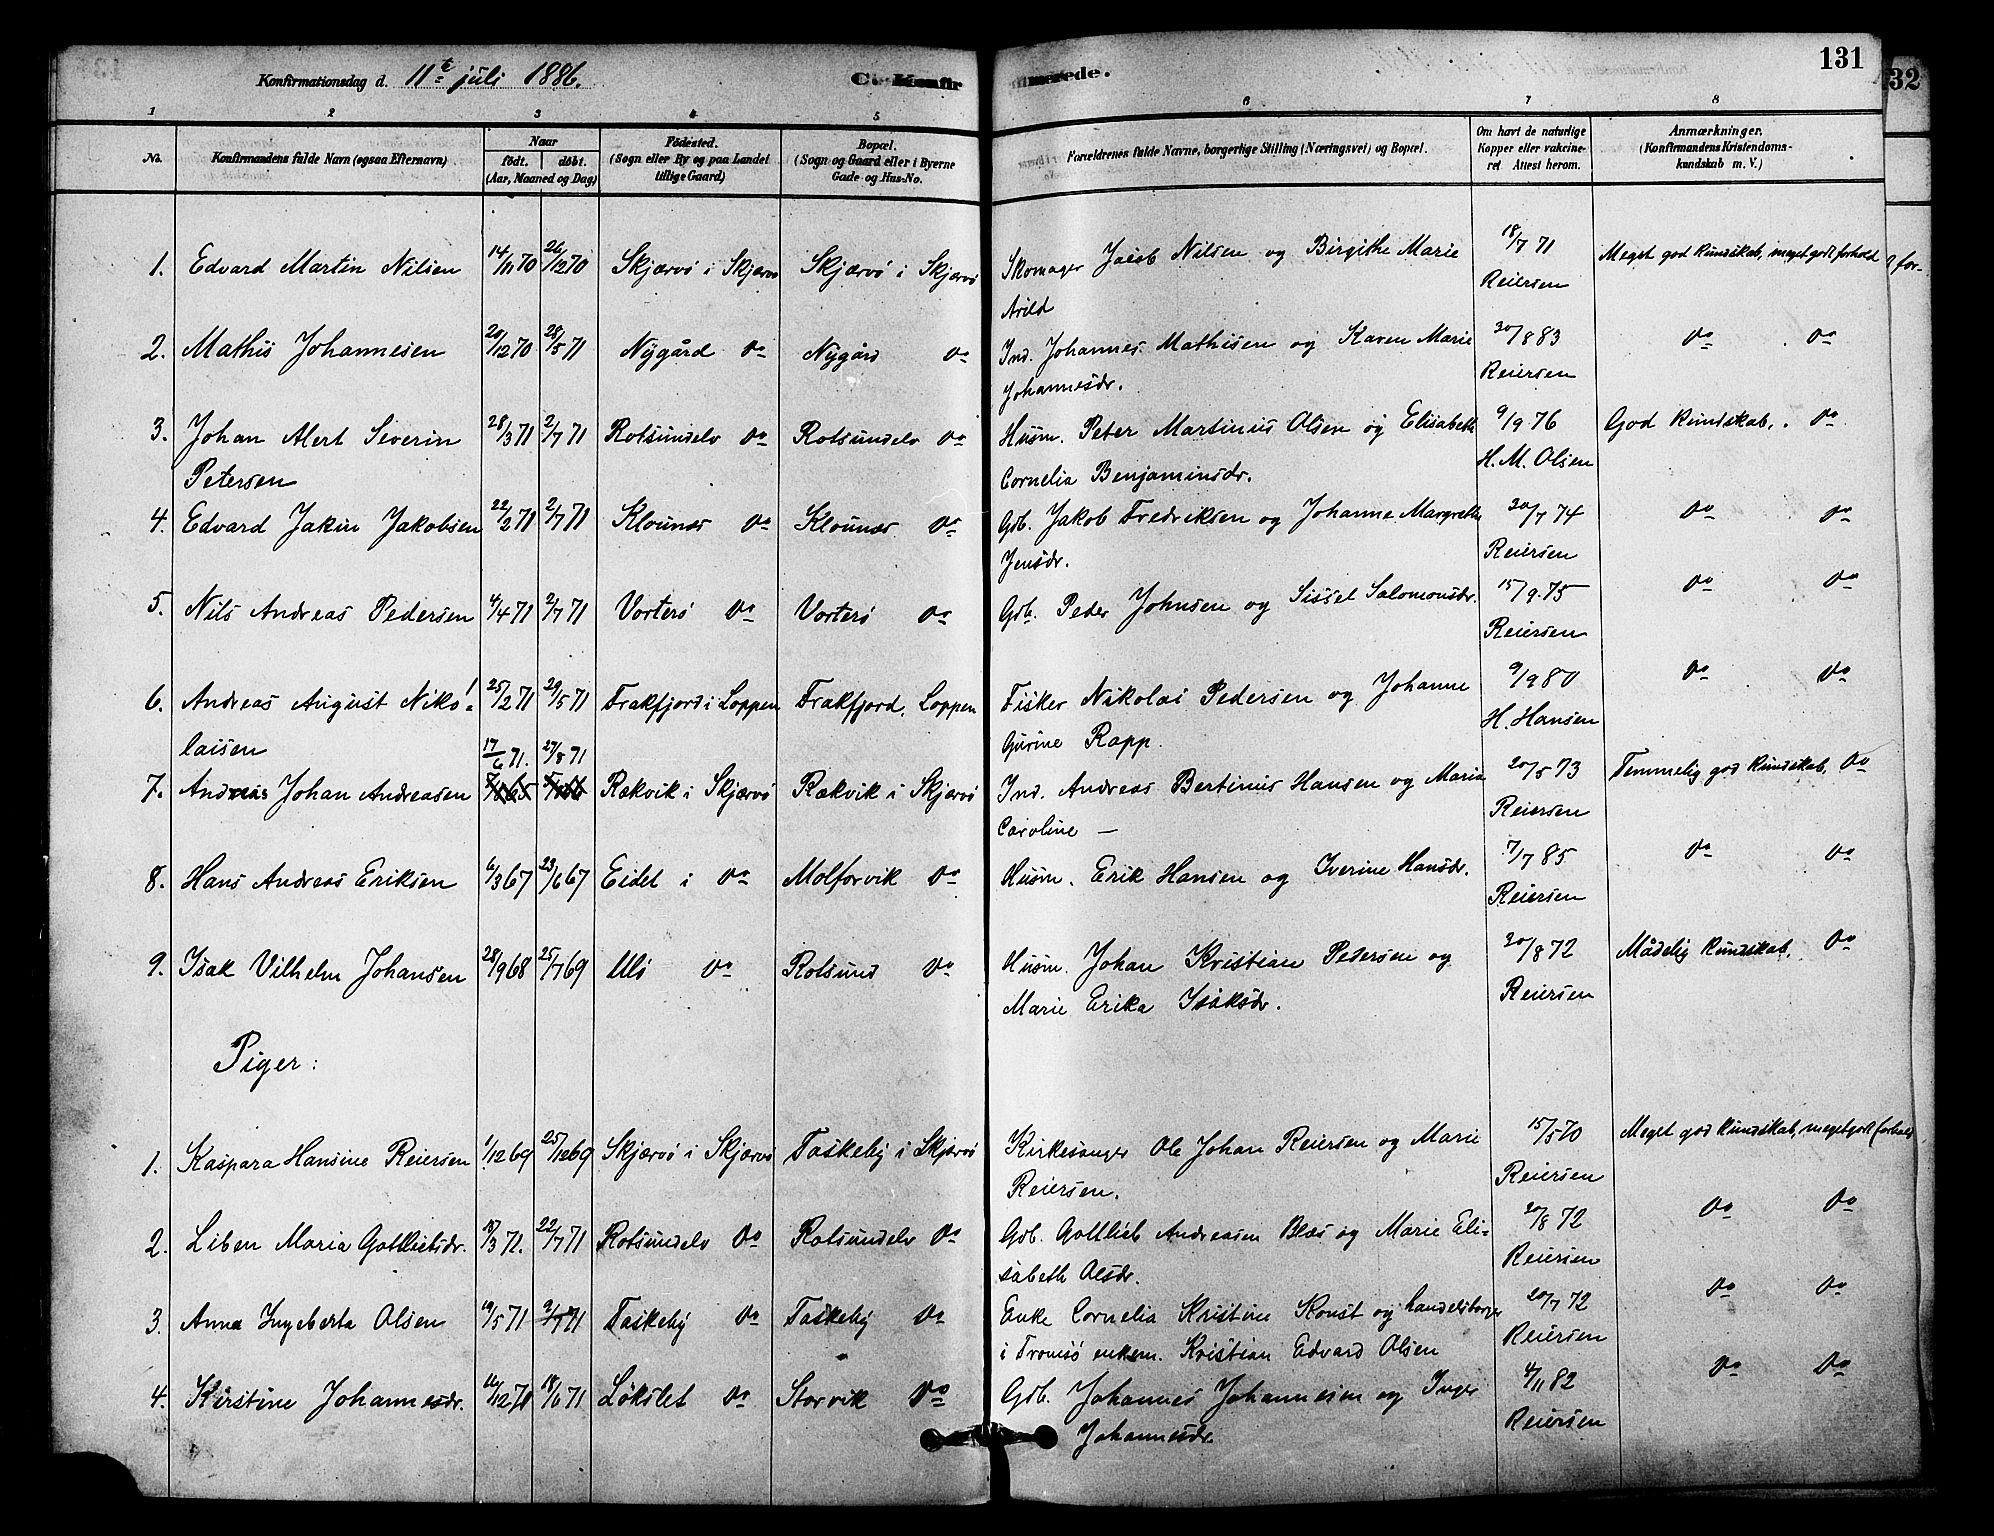 Konfirmationsdag d. 11te juli 1886.
C. Konfirmerede.
131
32
1 2 3 4 5 6 7 8
No.
Konfirmandens fulde Navn (ogsaa Efternavn).
Naar
födt. döbt.
(Aar, Maaned og Dag)
Födested.
(Sogn eller By og paa Landet
tillige Gaard)
Bopæl.
(Sogn og Gaard eller i Byerne
Gade- og Hus-No.
Forældrenes fulde Navne, borgerlige Stilling (Næringsvei) og Bopæl.
Om havt de naturlige
Kopper eller vakcine-
ret Attest herom.
Anmærkninger.
(Konfirmandens Kristendoms-
kundskab m. V.)
1. Edvard Martin Nilsen 14/11 70 26/12 70 Skjærvö i Skjærvö Skjærvö i Skjærvö Skomager Jacob Nilsen og Birgithe Marie 18/7 71 Meget god kundskab, meget godt forhold
Arild Reiersen
2. Mathis Johannesen 20/12 70 28/5 71 Nygård do Nygård do Ind. Johannes Mathisen og Karen Marie 30/8 83 do do
Johannesdr. Reiersen
3. Johan Alert Severin 28/3 71 2/7 71 Rotsundelv do Rotsundelv do Husm. Peter Martinus Olsen og Elisabeth 9/9 76 God kundskab, do
Petersen Cornelia Benjaminsdr. H. M. Olsen
4. Edvard Jakin Jakobsen 22/2 71 2/7 71 Klounæs do Klounæs do Gsb. Jakob Fredriksen og Johanne Margrethe 30/7 74 do do
Jensdr. Reiersen
5. Nils Andreas Pedersen 4/4 71 2/7 71 Vorterö do Vorterö do Gsb. Peder Johnsen og Sissel Salomonsdr. 15/9 75 do do
Reiersen
6. Andreas August Niko- 25/2 71 29/5 71 Frakfjord i Loppen Frakfjord, Loppen Fisker Nikolai Pedersen og Johanne 9/9 80 do do
laisen Gurine Rapp. H. Hansen
17/6 71. 27/8 71
7. Andreas Johan Andreasen Rækvik i Skjærvö Rækvik i Skjærvö Ind. Andreas Bertinus Hansen og Maria 20/5 73 Temmelig god kundskab, do
Caroline — Reiersen
8. Hans Andreas Eriksen 6/3 67 23/6 67 Eidet i do Molforvik do Husm. Erik Hansen og Iverine Hansdr. 7/7 85 do do
Reiersen
9. Isak Vilhelm Johansen 28/9 68 25/7 69 Ulö do Rotsund do Husm. Johan Kristian Pedersen og 20/8 72 Mådelig kundskab, do
Marie Erika Isaksdr. Reiersen
Piger:
1. Kaspara Hansine Reiersen 1/12 69 25/12 69 Skjærvö i Skjærvö Taskeby i Skjærvö Kirkesanger Ole Johan Reiersen og Marie 15/5 70 Meget god kundskab, meget godt forhold
Reiersen. Reiersen
2. Liben Maria Gottliebsdr. 18/3 71. 22/7 71 Rotsundelv do Rotsundelv do Gsb. Gottlieb Andreasen Blæs og Marie Eli- 20/8 72 do do
sabeth Olsdr. Reiersen
3. Anna Ingeberta Olsen 19/5 71 2/7 71 Taskeby do Taskeby do Enke Cornelia Kristine Konst og handelsborger 20/7 72 do do
i Tromsö enkem. Kristian Edvard Olsen Reiersen
4. Kirstine Johannesdr. 12/12 70 18/6 71 Lökslet do Storvik do Gsb. Johannes Johannesen og Inger 4/11 82 do do
Johannesdr. Reiersen